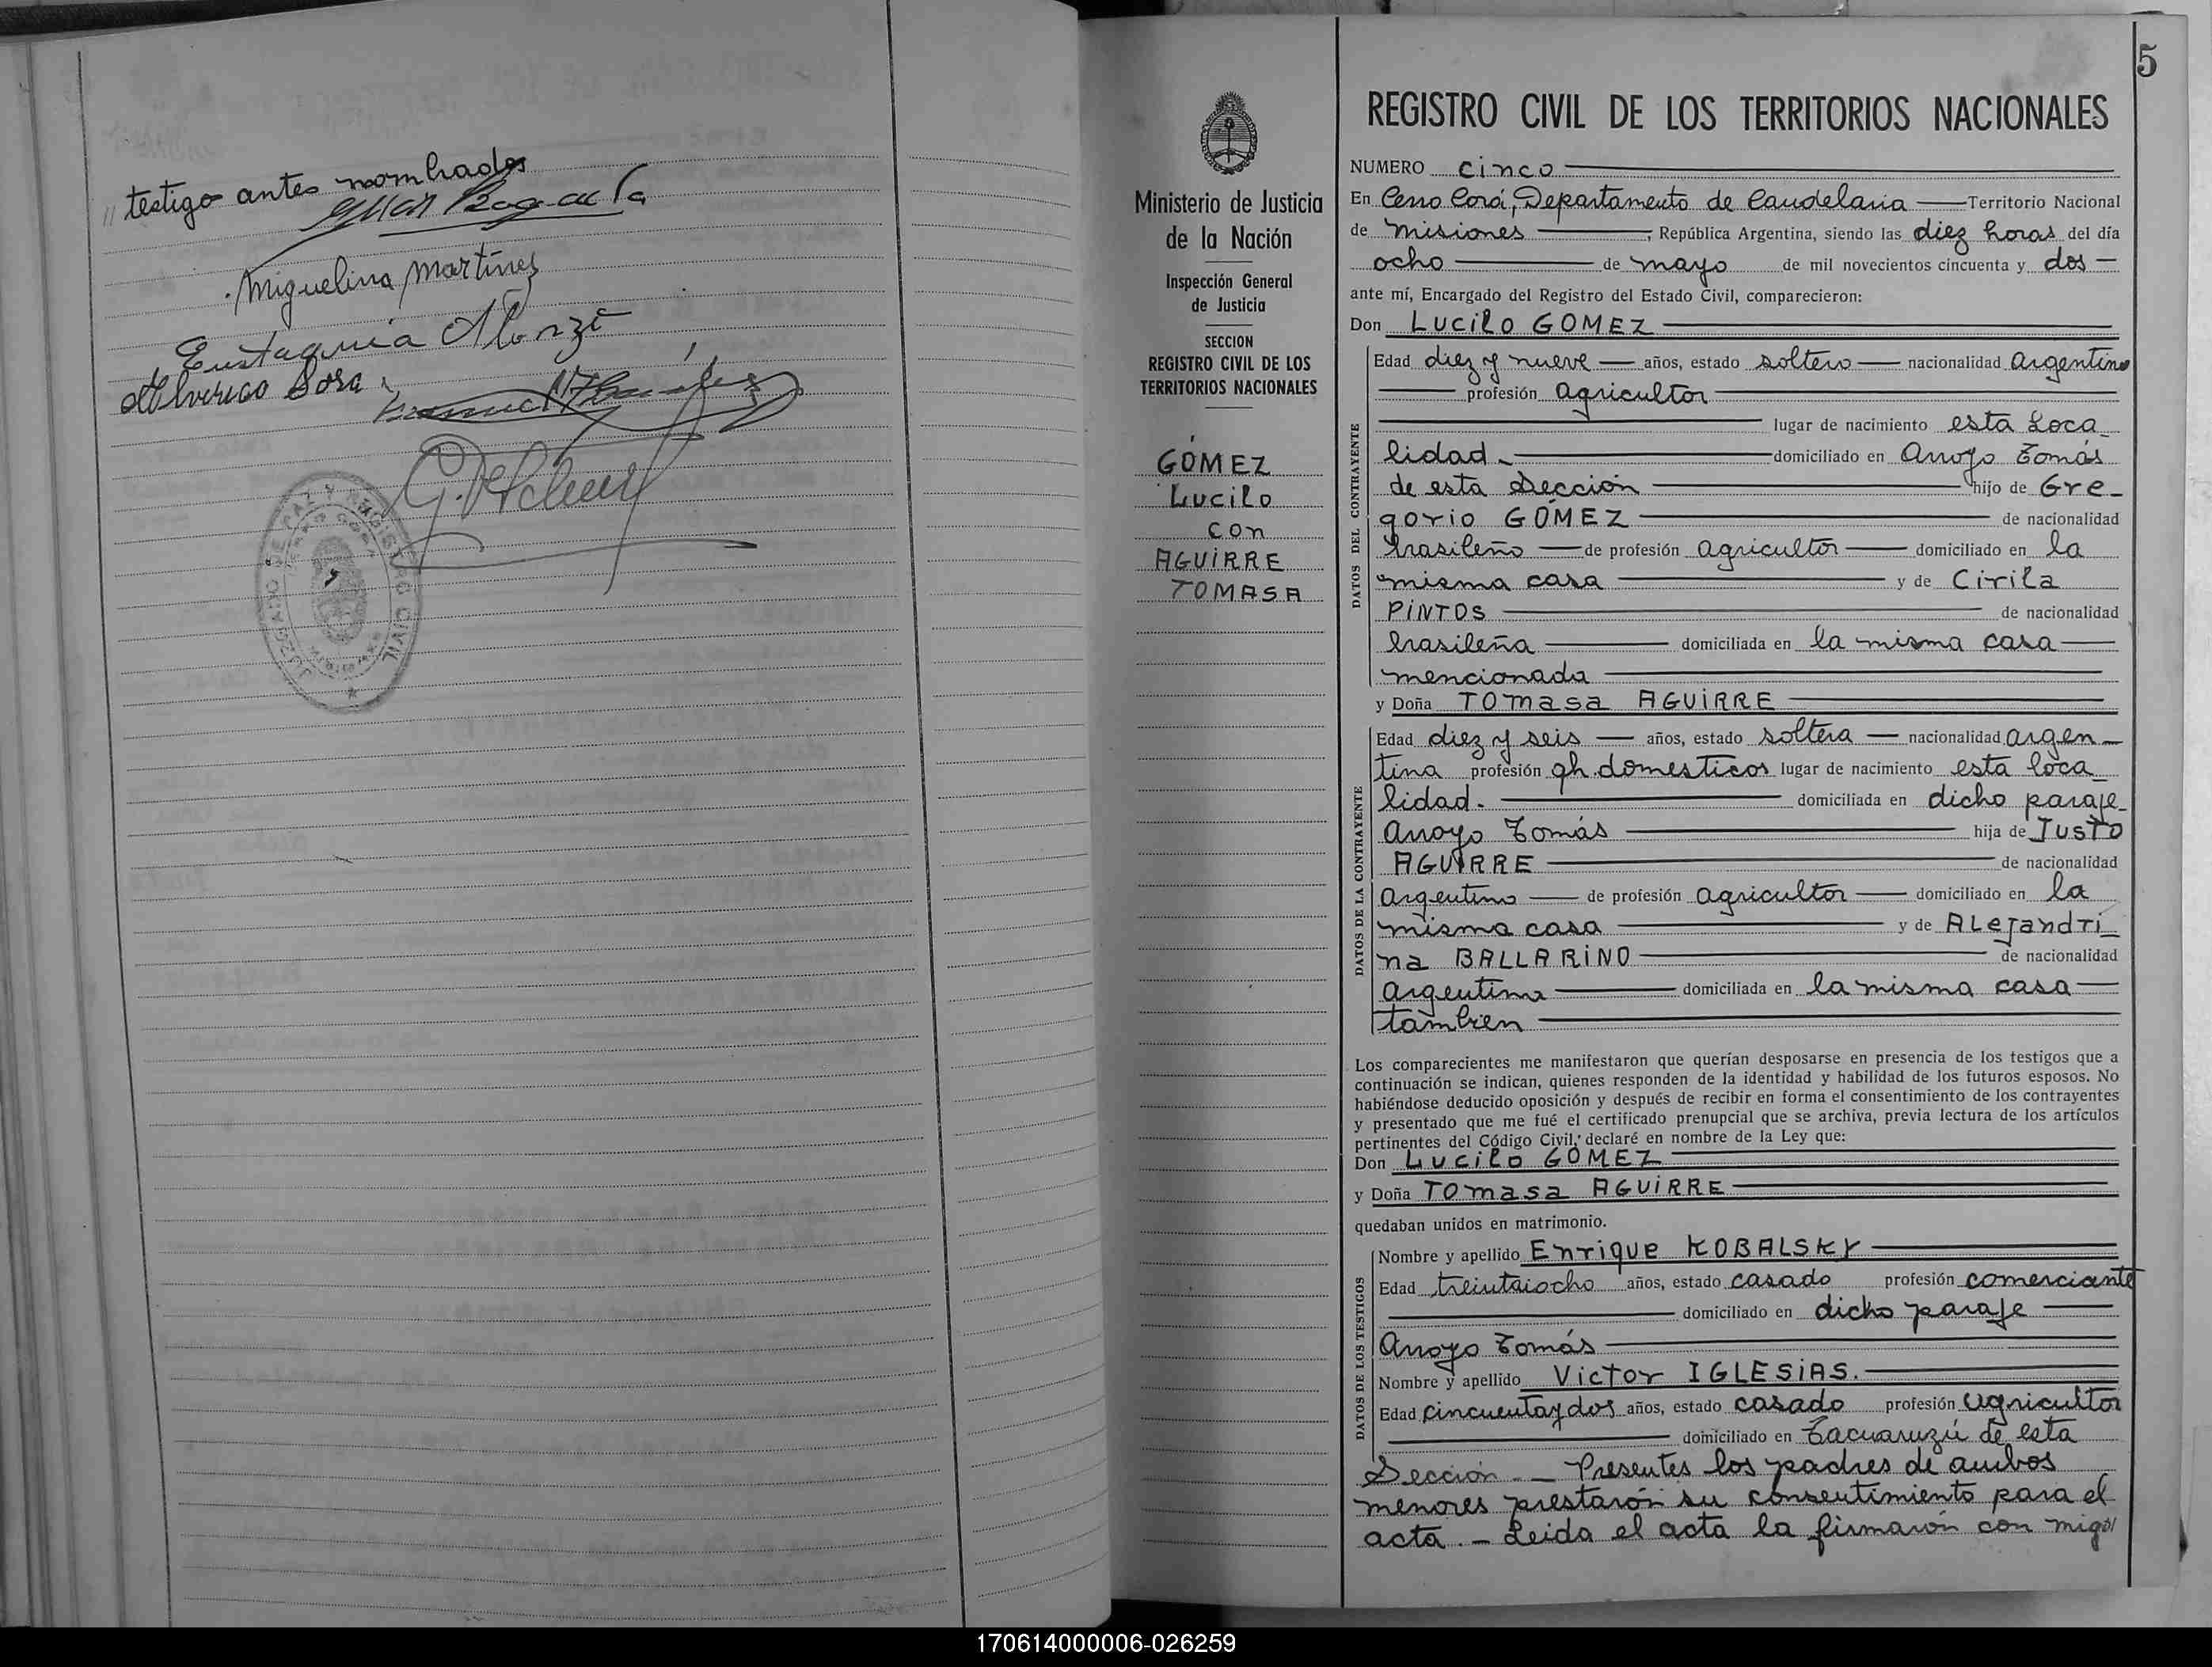 testigos antes nombrados
Miguelina Martínez
Eustaquia Alonzo
Alverico Sosa
JUZGADO DE PAZ Y REGISTRO CIVIL
5
REGISTRO CIVIL DE LOS TERRITORIOS NACIONALES
Ministerio de Justicia
de la Nación
Inspección General
de Justicia
SECCION
REGISTRO CIVIL DE LOS
TERRITORIOS NACIONALES
GÓMEZ
Lucilo
con
AGUIRRE
TOMASA
NUMERO cinco
En Cerro Corá, Departamento de Candelaria Territorio Nacional
de Misiones, República Argentina, siendo las diez horas del día
ocho de mayo de mil novecientos cincuenta y dos
ante mí, Encargado del Registro del Estado Civil, comparecieron:
Don Lucilo GOMEZ
DATOS DEL CONTRAYENTE
Edad diez y nueve años, estado soltero nacionalidad argentino
profesión agricultor
lugar de nacimiento esta Loca_
lidad. domiciliado en Arroyo Tomás
de esta Sección hijo de Gre_
gorio GÓMEZ de nacionalidad
brasileño de profesión agricultor domiciliado en la
misma casa y de Cirila
PINTOS de nacionalidad
brasileña domiciliada en la misma casa
mencionada
y Doña Tomasa AGUIRRE
DATOS DE LA CONTRAYENTE
Edad diez y seis años, estado soltera nacionalidad argen_
tina profesión qh. domesticos lugar de nacimiento esta loca_
lidad. domiciliada en dicho paraje_
Arroyo Tomás hija de Justo
AGUIRRE de nacionalidad
argentino de profesión agricultor domiciliado en la
misma casa y de Alejandri_
na BALLARINO de nacionalidad
argentina domiciliada en la misma casa
tambien
Los comparecientes me manifestaron que querían desposarse en presencia de los testigos que a
continuación se indican, quienes responden de la identidad y habilidad de los futuros esposos. No
habiéndose deducido oposición y después de recibir en forma el consentimiento de los contrayentes
y presentado que me fué el certificado prenupcial que se archiva, previa lectura de los artículos
pertinentes del Código Civil, declaré en nombre de la Ley que:
Don Lucilo GOMEZ
y Doña Tomasa AGUIRRE
quedaban unidos en matrimonio.
DATOS DE LOS TESTIGOS
Nombre y apellido Enrique KOBALSKY
Edad treintaiocho años, estado casado profesión comerciante
domiciliado en dicho paraje
Arroyo Tomás
Nombre y apellido Victor IGLESIAS.
Edad cincuentaydos años, estado casado profesión agricultor
domiciliado en Tacuaruzú de esta
Sección._ Presentes los padres de ambos
menores prestarón su consentimiento para el
acta._ Leida el acta la firmarón con migo
170614000006-026259